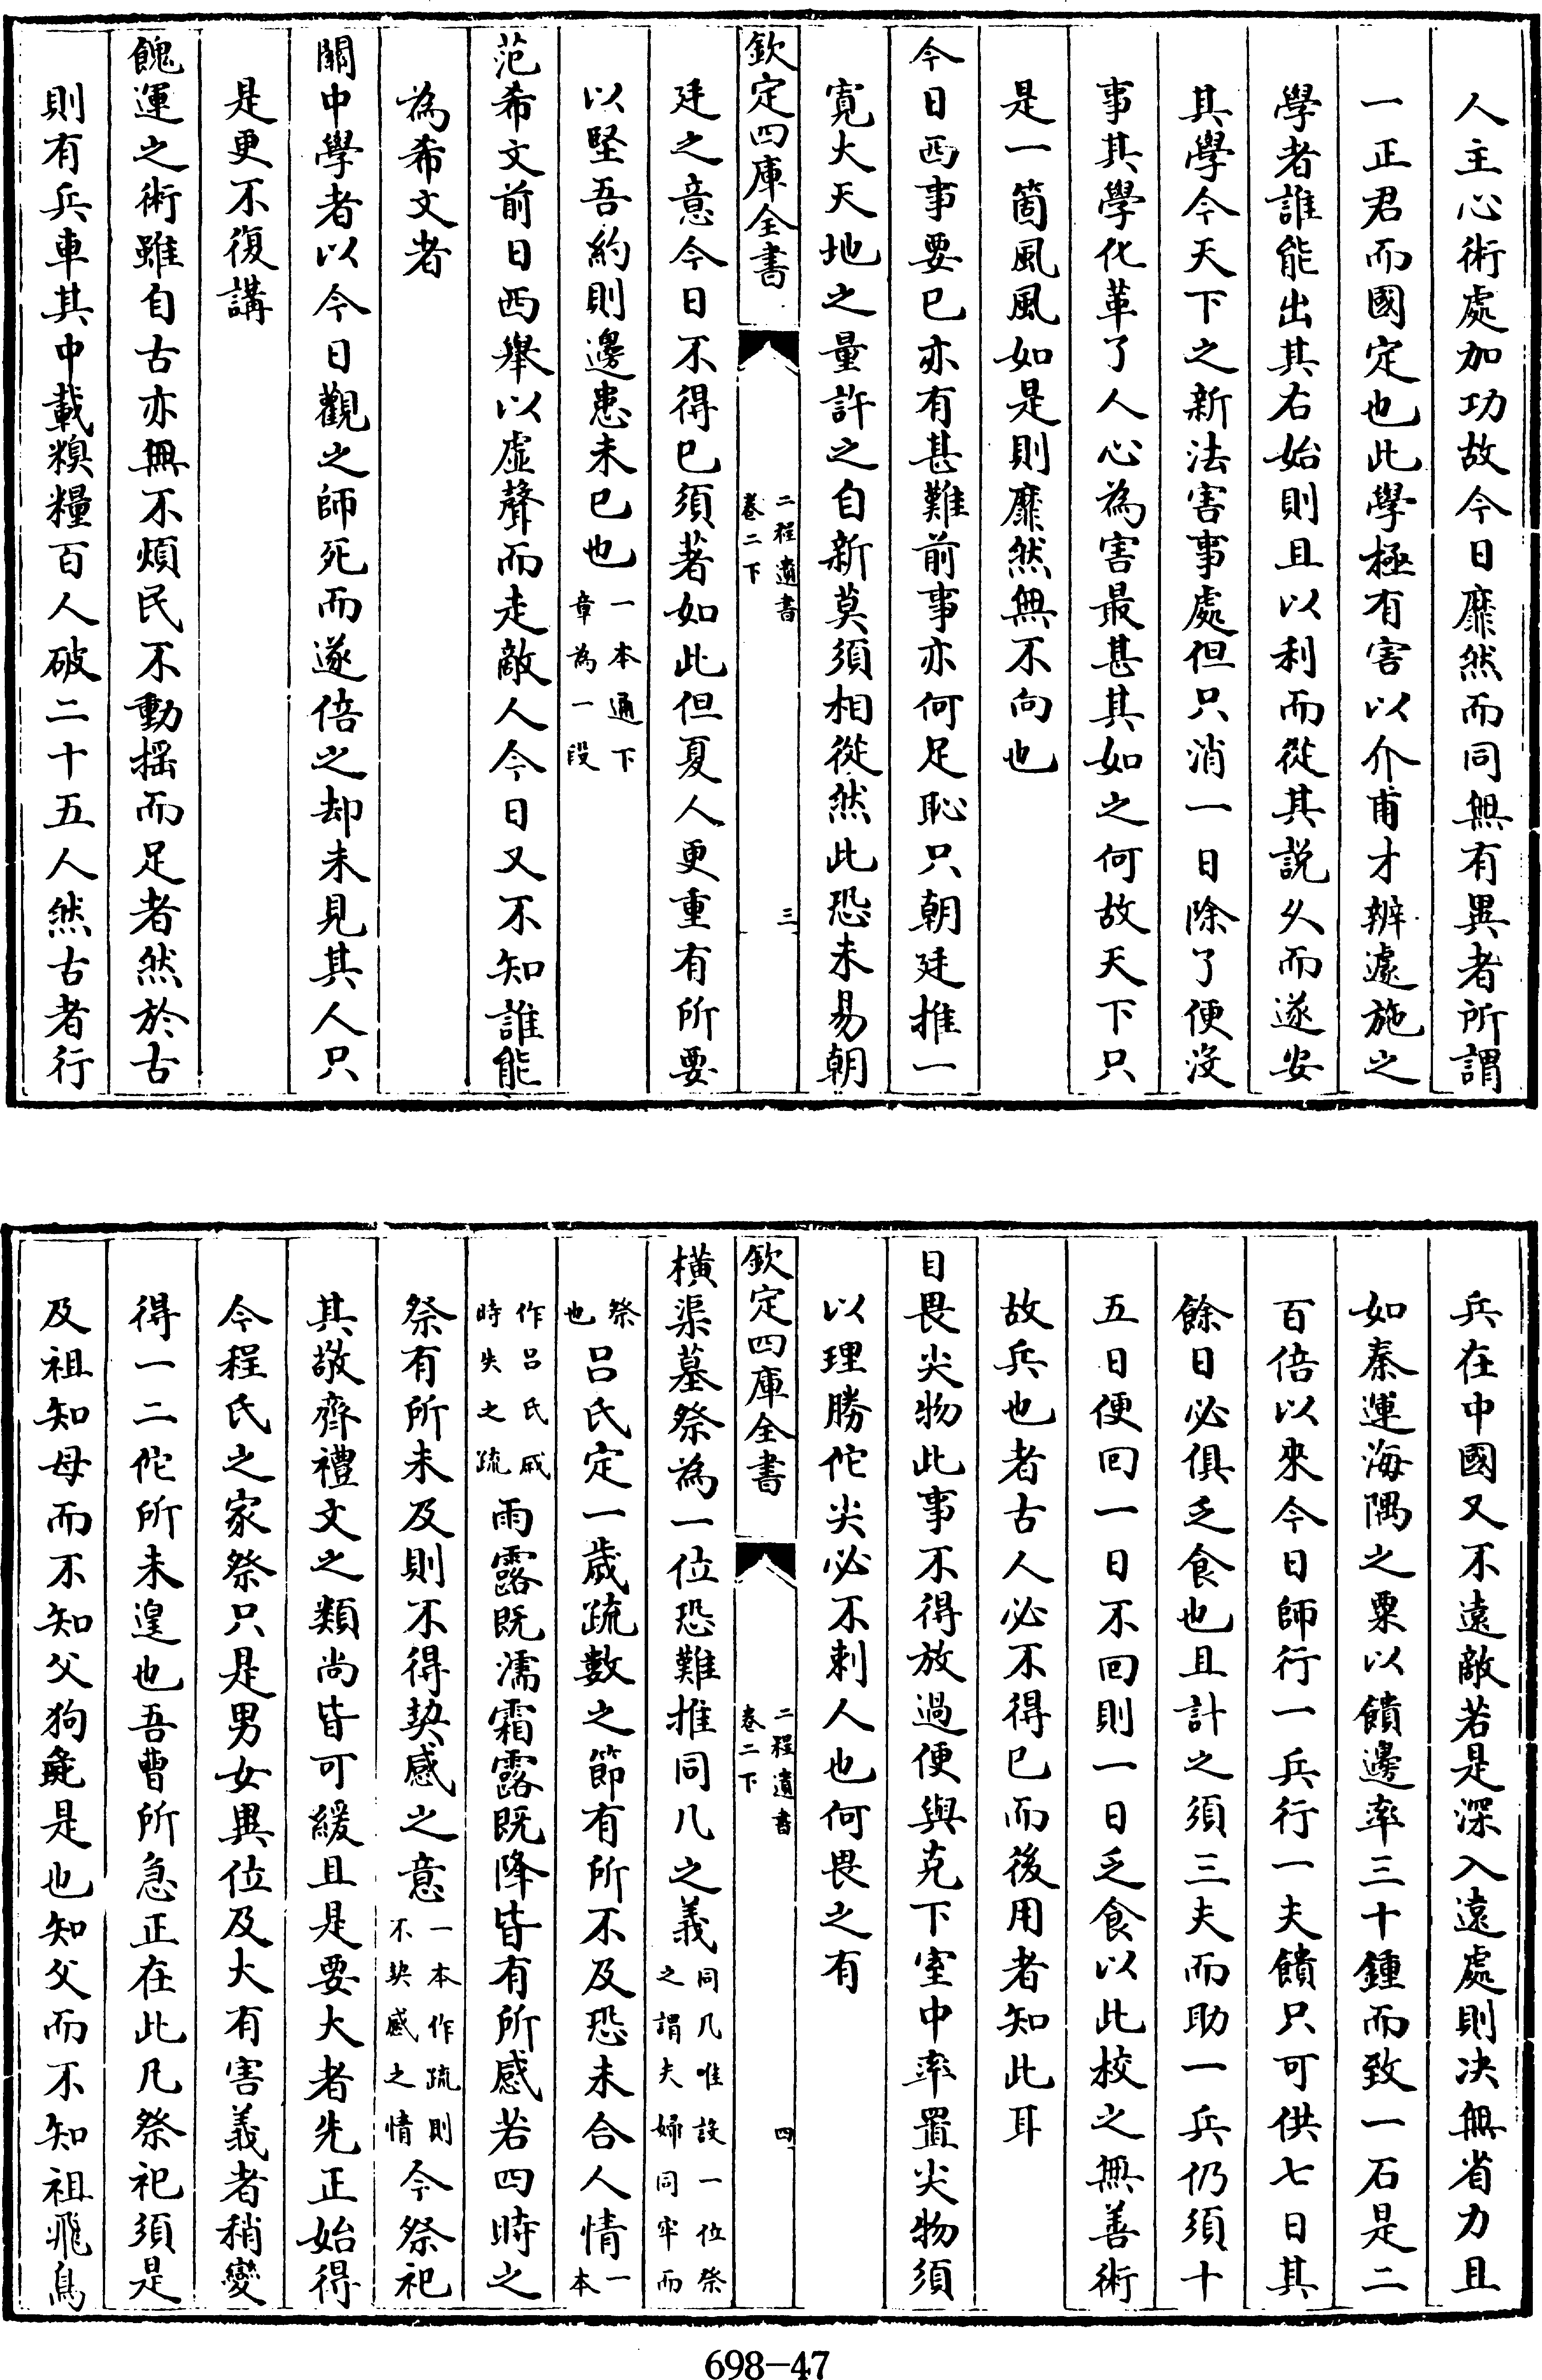 人主心術處加功故今日靡然而同無有異者所謂
一正君而國定也此學極有害以介甫才辨遽施之
學者誰能出其右始則且以利而從其說久而遂安
其學今天下之新法害事處但只消一日除了便沒
事其學化革了人心為害最甚其如之何故天下只
是一箇風風如是則靡然無不向也
今日西事要已亦有甚難前事亦何足恥只朝廷推一
寛大天地之量許之自新莫須相從然此恐未易朝
欽定四庫全書
二程遺書
卷二下
三
廷之意今日不得已須著如此但夏人更重有所要
以堅吾約則邊患未已也一本通下章為一段
范希文前日西舉以虛聲而走敵人今日又不知誰能
為希文者
關中學者以今日觀之師死而遂倍之却未見其人只
是更不復講
餽運之術雖自古亦無不煩民不動摇而足者然於古
則有兵車其中載糗糧百人破二十五人然古者行
兵在中國又不遠敵若是深入遠處則决無省力且
如秦運海隅之粟以饋邊率三十鍾而致一石是二
百倍以來今日師行一兵行一夫饋只可供七日其
餘日必俱乏食也且計之須三夫而助一兵仍須十
五日便回一日不回則一日乏食以此校之無善術
故兵也者古人必不得已而後用者知此耳
目畏尖物此事不得放過便與克下室中率置尖物須
以理勝佗尖必不刺人也何畏之有
欽定四庫全書
二程遺書
卷二下
四
橫渠墓祭為一位恐難推同几之義同几唯設一位祭之謂夫婦同牢而
祭也呂氏定一歲疏數之節有所不及恐未合人情一本
作呂氏歲時失之疏雨露既濡霜露既降皆有所感若四時之
祭有所未及則不得契感之意一本作疏則不契感之情今祭祀
其敬齊禮文之類尚皆可緩且是要大者先正始得
今程氏之家祭只是男女異位及大有害義者稍變
得一二佗所未遑也吾曹所急正在此凡祭祀須是
及祖知母而不知父狗彘是也知父而不知祖飛鳥
698-47